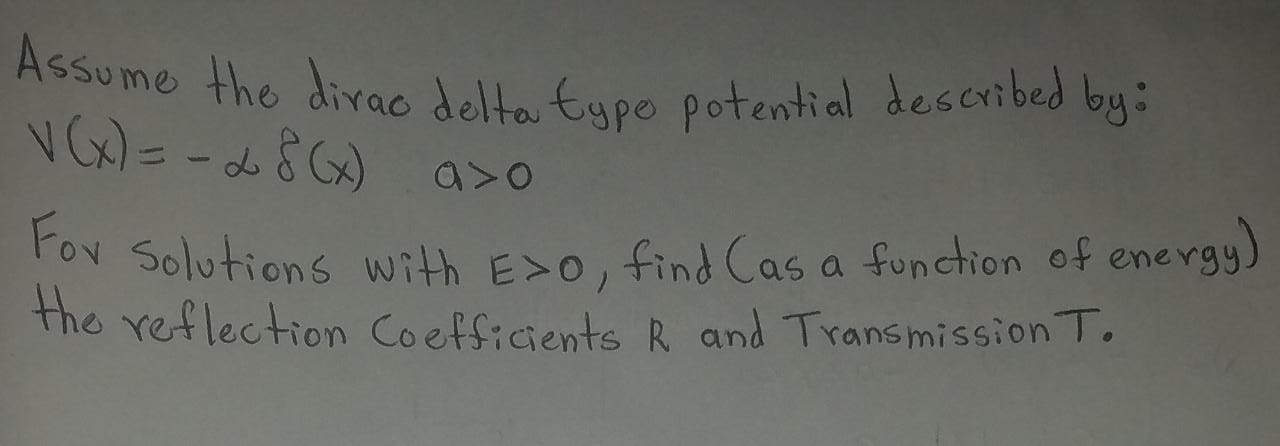 Assume the dirac delta type potential described by:
V(x) = - α δ(x) a>0
For Solutions with E>0, find (as a function of energy)
the reflection Coefficients R and Transmission T.